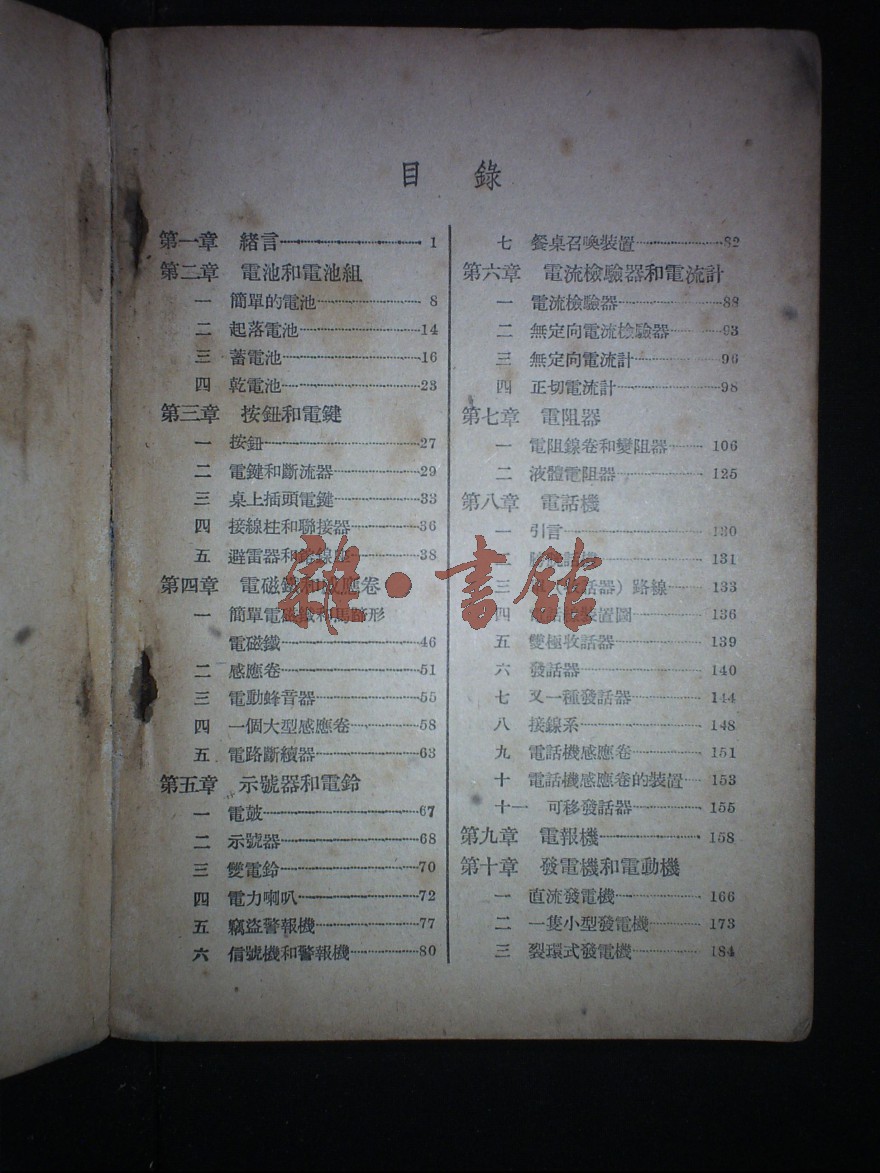 目 錄
第一章 緒言 1
第二章 電池和電池組
一 簡單的電池 8
二 起落電池 14
三 蓄電池 16
四 乾電池 23
第三章 按鈕和電鍵
一 按鈕 27
二 電鍵和斷流器 29
三 桌上插頭電鍵 33
四 接線柱和聯接器 36
五 避雷器和 38
第四章 電磁鐵和感應卷
一 簡單電磁鐵和馬蹄形
電磁鐵 46
二 感應卷 51
三 電動蜂音器 55
四 一個大型感應卷 58
五 電路斷續器 63
第五章 示號器和電鈴
一 電鼓 67
二 示號器 68
三 雙電鈴 70
四 電力喇叭 72
五 竊盜警報機 77
六 信號機和警報機 80
七 餐桌召喚裝置 82
第六章 電流檢驗器和電流計
一 電流檢驗器 88
二 無定向電流檢驗器 93
三 無定向電流計 96
四 正切電流計 98
第七章 電阻器
一 電阻線卷和變阻器 106
二 液體電阻器 125
第八章 電話機
一 引言 130
二 131
三 （收話器）路線 133
四 裝置圖 136
五 雙極收話器 139
六 發話器 140
七 又一種發話器 144
八 接線系 148
九 電話機感應卷 151
十 電話機感應卷的裝置 153
十一 可移發話器 155
第九章 電報機 158
第十章 發電機和電動機
一 直流發電機 166
二 一隻小型發電機 173
三 裂環式發電機 184
雜·書館